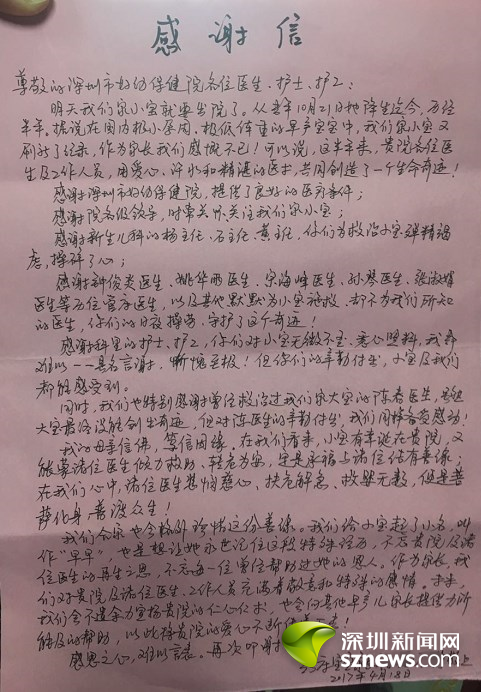 感谢信
尊敬的深圳市妇幼保健院各位医生、护士、护工:
明天我们家小宝就要出院了。从去年10月21日她降生迄今,历经
半年。据说在国内极小孕周、极低体重的早产宝宝中,我们家小宝又
刷新了纪录,作为家长我们感慨不已!可以说,这半年来,贵院各位医
生及工作人员,用爱心、汗水和精湛的医术,共同创造了一个生命奇迹!
感谢深圳市妇幼保健院,提供了良好的医疗条件;
感谢院各级领导,时常关怀关注我们家小宝;
感谢新生儿科的杨主任、石主任、黄主任,你们为救治小宝殚精竭
虑,操碎了心;
感谢 医生、姚华丽医生、宋海峰医生、孙琴医生、
医生等历位管床医生,以及其他默默为小宝施救、却不为我们所知
的医生,你们的日夜操劳,守护了这个奇迹!
感谢科里的护士、护工,你们对小宝无微不至、悉心照料,我辈
难以一一具名言谢,惭愧至极!但你们的辛勤付出,小宝及我们
都能感受到。
同时,我们也特别感谢曾位救治过我们家大宝的陈春医生,虽然
大宝最终没能创出奇迹,但对陈医生的辛勤付出,我们同样备受感动!
我的母亲信佛,笃信因缘。在我们看来,小宝有幸诞在贵院,又
能蒙诸位医生倾力救助、转危为安,定是承福与诸位结有善缘;
在我们心中,诸位医生悲悯慈心、扶危解急、救婴无数,便是菩
萨化身,普渡众生!
我们全家也会格外珍惜这份善缘。我们给小宝起了小名,叫
作“早早”,也是想让她永世记住这段特殊经历,不忘贵院及诸
位医生的再生之恩,不忘每一位曾位帮助过她的恩人。作为家长,我
们对贵院及诸位医生、工作人员充满着敬意和特殊的感情。未来,
我们会不遗余力宣扬贵院的仁心仁术,也会向其他早产儿家长提供力所
能及的帮助,以此将贵院的爱心不断传
感恩之心,难以言表。再次叩谢
上
2017年4月18日
深圳新闻网
sznews.com